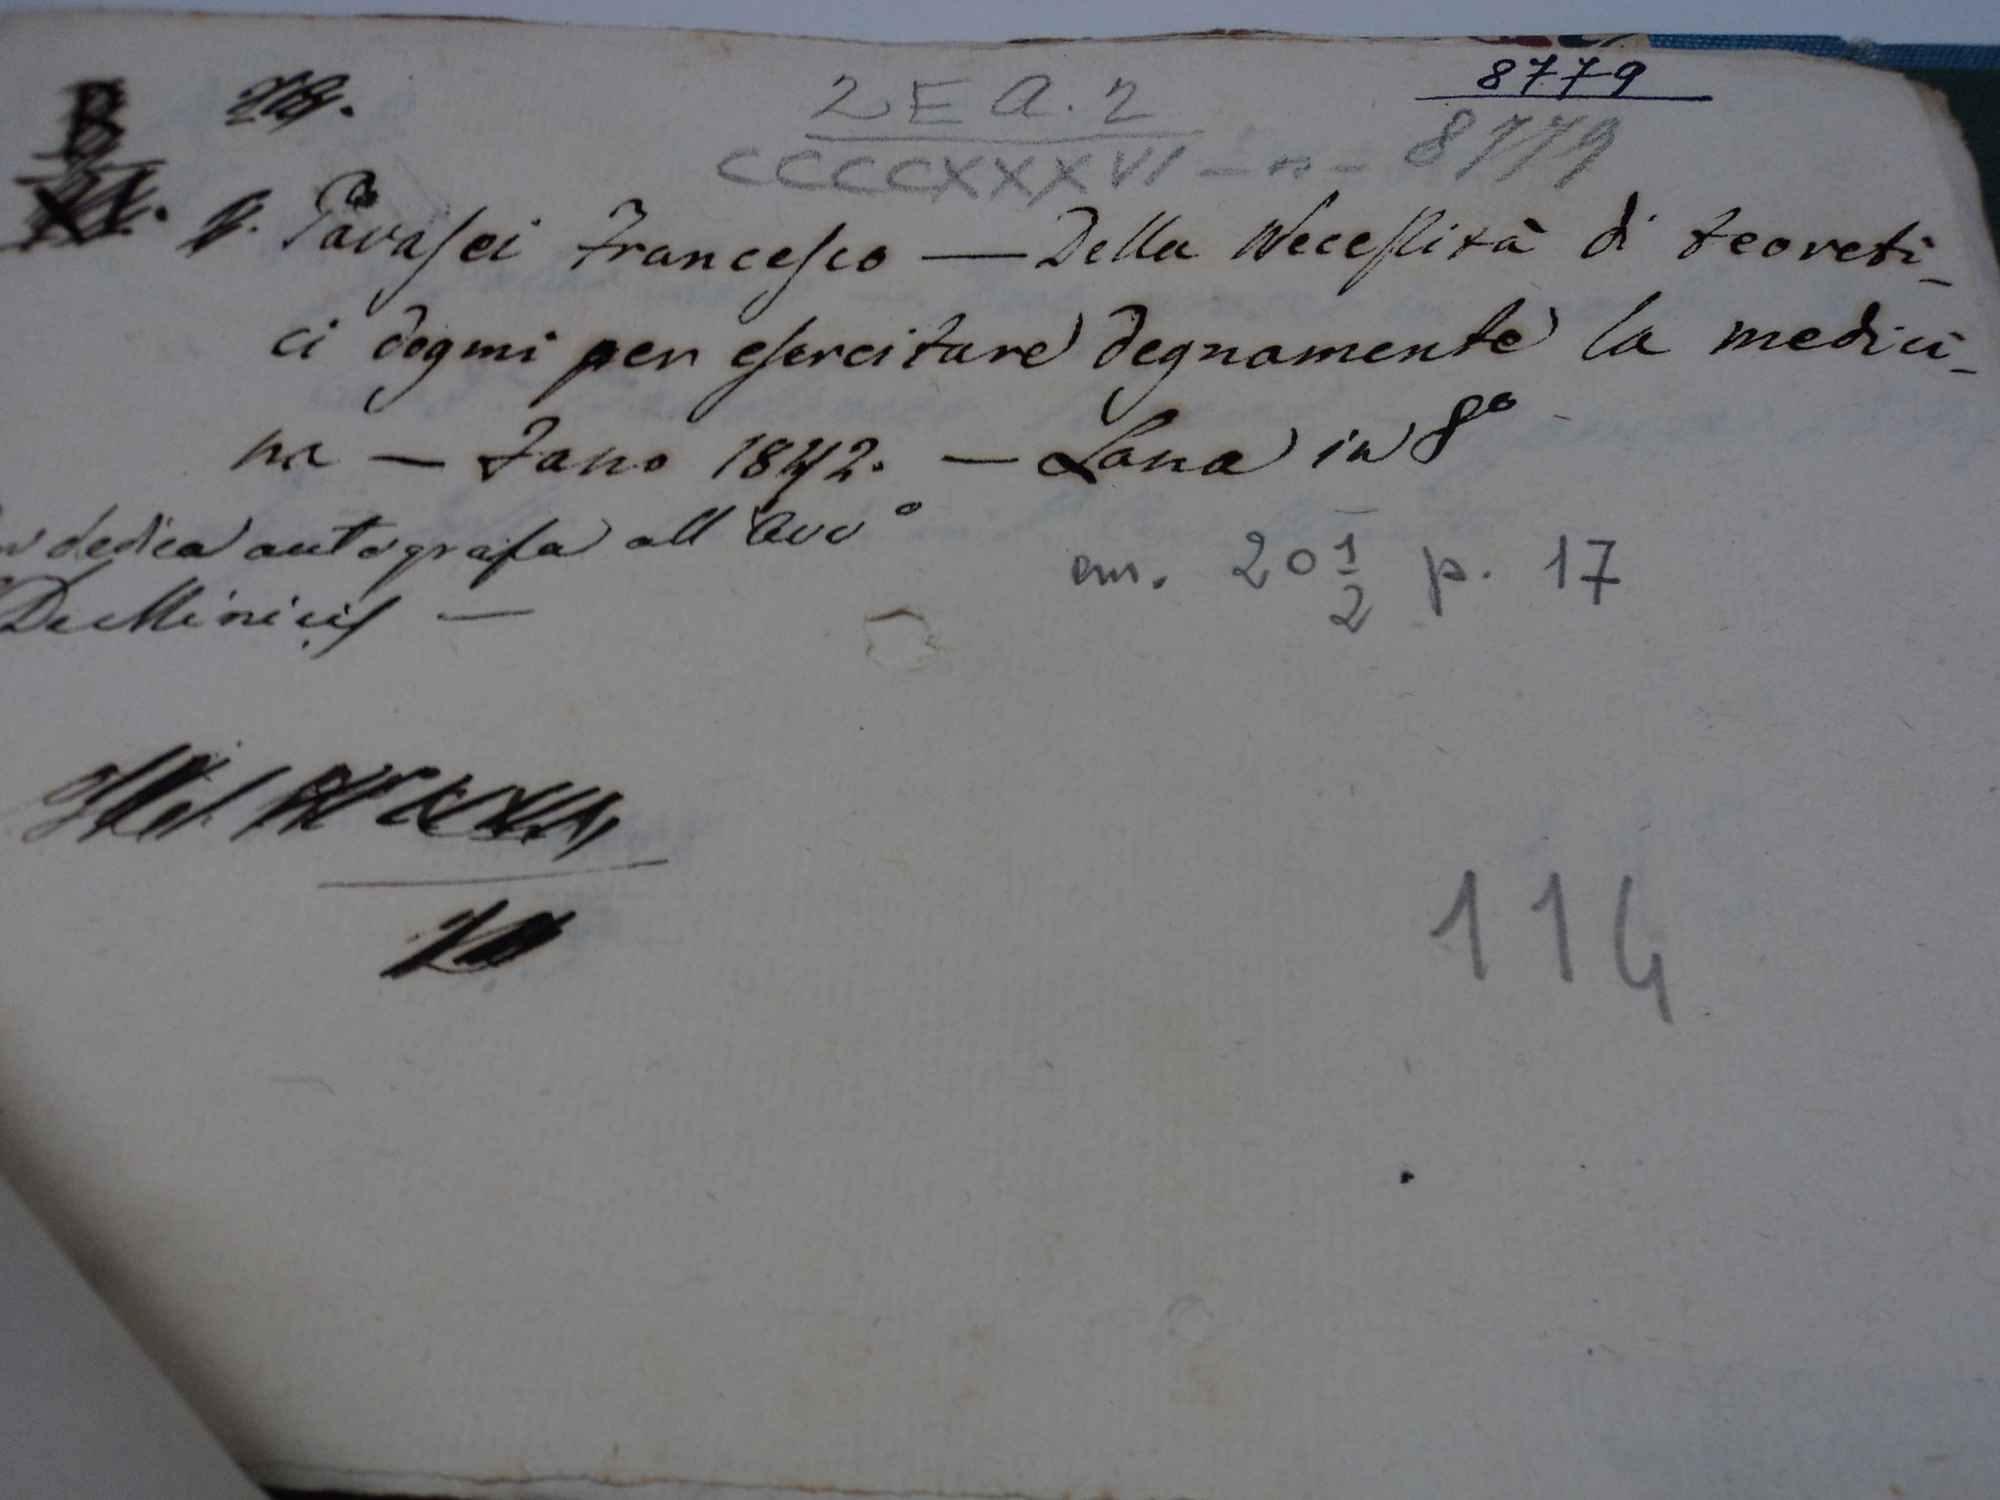 8779
2 E A. 2
CCCCXXXVI - n - 8779
Pavasei Francesco — Della Necessità di teoreti-
ci dogmi per esercitare degnamente la medici-
na — Fano 1842. — Lana in 8º
dedica autografa all Avvº
De Minicis —
cm. 20 1/2 p. 17
114